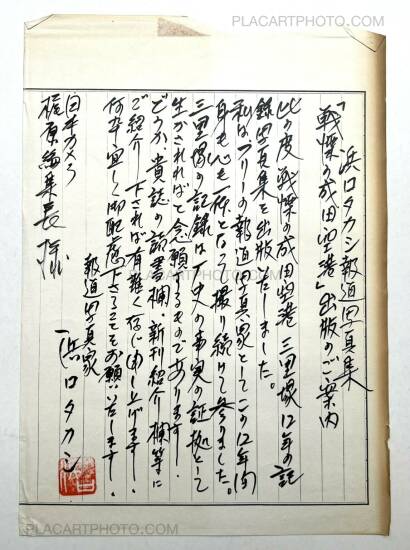 PLACARTPHOTO.COM
浜口タカシ報道写真集
「戦慄の成田空港」出版のご案内
此の度戦慄の成田空港三里塚12年の記
録写真集を出版いたしました。
私はフリーの報道写真家としてこの12年間
身も心も一体となって撮り続けて参りました。
三里塚の記録は一史の事実の証拠として
生かされればと念願するものであります。
どうか貴誌の読書欄、新刊紹介欄等に
ご紹介下されば有難く存じ申し上げます。
何卒宜しく御配慮下さることをお願い致します。
報道写真家
浜口タカシ
日本カメラ
梶原編集長様
PLACARTPHOTO.COM
PLACARTPHOTO.COM